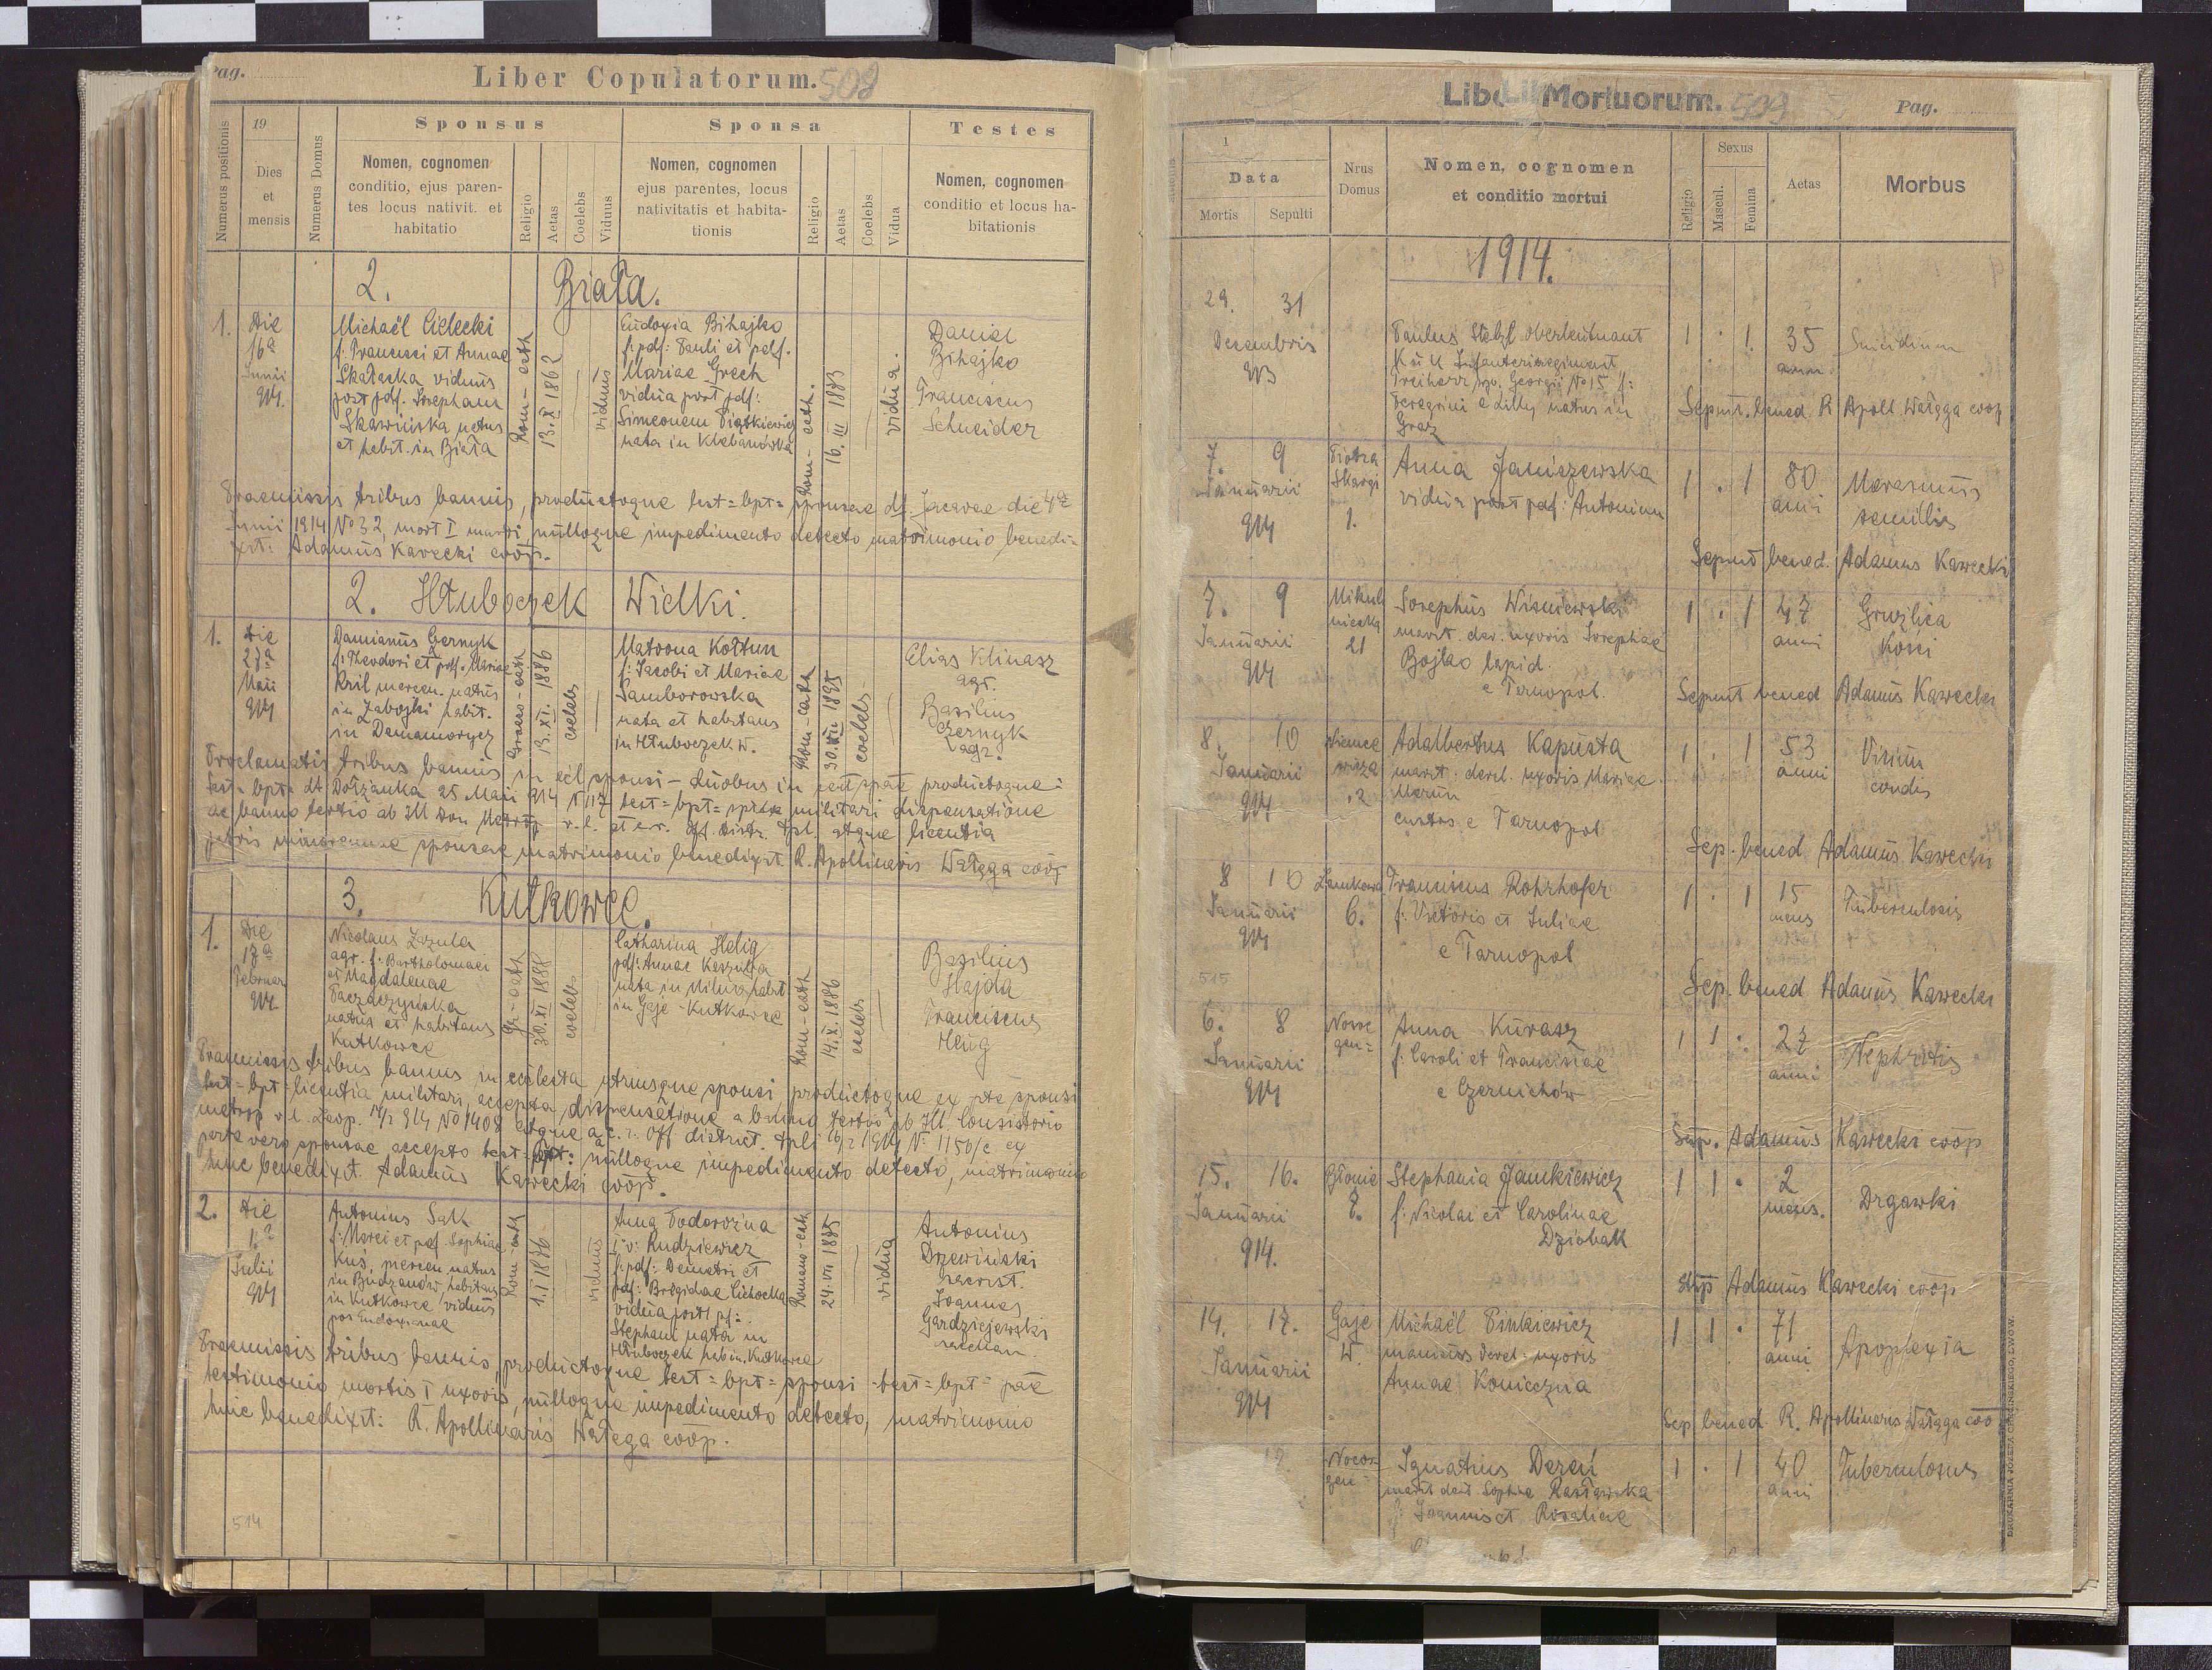 Pag.
Liber Copulatorum. 508
Numerus positionis
19
Dies
et
mensis
Numerus Domus
Sponsus
Nomen, cognomen
conditio, ejus paren-
tes locus nativit. et
habitatio
Religio
Aetas
Coelebs
Viduus
Sponsa
Nomen, cognomen
ejus parentes, locus
nativitatis et habita-
tionis
Religio
Aetas
Coelebs
Vidua
Testes
Nomen, cognomen
conditio et locus ha-
bitationis
2. Biała.
1.
Die
16a
Junii
914
Michaël Cielecki
f: Francisci et Annae
Skałacka viduus
post pdf. Josepham
Skawińska natus
et habit. in Biała
Rom-cath
13.X 1862
viduus
Eudoxia Bihajko
f: pdf: Pauli et pdf.
Mariae Grech
vidua post pdf:
Simeonem Piątkiewicz
nata in Klebanówka
Rom-cath.
16. III 1883
vidua.
Daniel
Bihajko
Franciscus
Schneider
Praemissis tribus bannis, productoque test=bpt= sponsae dt. Jacavae die 4a
Junii 1914 No 32, mort I mariti, nulloque impedimento detecto matrimonio benedi=
xit: Adamus Kawecki coop.
2. Hłuboczek Wielki.
1.
Die
27a
Maii
914
Damianus Czernyk
f: Theodori et pdf. Mariae
Kril mercen. natus
in Zabojki habit.
in Denamorycz
Graeco-cath
13.XI. 1886
coelebs
Matrona Kołtun
f: Jacobi et Mariae
Samborowska
nata et habitans
in Hłuboczek W.
Rom-cath
30.XII 1895
coelebs
Elias Klimasz
agr.
Basilius
Czernyk
agr.
Proclamatis tribus bannis in eccl sponsi - duobus in eccl spae productoque:
test= bpt= dt Dołżanka 25 Maii 914 N 117 test= bpt= spsae militari dispensatione
ac banno tertio ab Ill Don Metrop r.l. et c.r. Off. distr. Tpl. atque licentia
patris minorennae sponsae matrimonio benedixit R. Apollinaris Wałęga coop
3. Kutkowce.
1.
Die
17a
Februar
914
Nicolaus Zazula
agr. f: Bartholomaei
et Magdalenae
Paczaczyńska
natus et habitans
Kutkowce
Gr-cath
30.XI 1888
coelebs
Catharina Helig
pdf: Annae Kaszuba
nata in Milno habit
in Gaje-Kutkowce
Rom-cath
14.X. 1886
coelebs
Basilius
Hajda
Franciscus
Helig
Praemissis tribus bannis in ecclesia utriusque sponsi productoque ex pte sponsi
test=bpt=licentia militari, accepta dispensatione a banno tertio ab Ill. Consistorio
metrop r.l. Leop. 14/2 914 No 1408 atque a c.r. Off district. Tpli 16/2 1914 N. 1150/c ex
parte vero sponsae accepto test=bpt: nulloque impedimento detecto, matrimonio
hinc benedixit. Adamus Kawecki coop.
2.
Die
1a
Julii
914
Antonius Sak
f: Marci et pdf Sophiae
Kuś, mercen. natus
in Budzanów, habitans
in Kutkowce viduus
pos Eudoxianae
Rom-cath
1.I 1876
viduus
Anna Fodorozina
I°v: Rudziewicz
f: pdf: Demetri et
pdf: Brigidae Cichocka
vidua post pf:
Stephani nata in
Hłuboczek hab in Kutkowce
Romano-cath
24.VII 1885
vidua
Antonius
Drzewiński
sacrist.
Joannes
Gardziejewski
mechan.
Praemissis tribus bannis, productoque test=bpt= sponsi test=bpt= pae
testimonio mortis I uxoris, nulloque impedimento detecto, matrimonio
hinc benedixit: R. Apollinaris Wałęga coop.
514
Liber Mortuorum. 509
Pag.
1
Data
Mortis
Sepulti
Nrus
Domus
Nomen, cognomen
et conditio mortui
Religio
Sexus
Mascul.
Femina
Aetas
Morbus
1914.
29. 31
Decembris
913
Paulus Stelzl Oberleutnant
K ü K Infanterieregiment
Freiherr sp. Georgii No 15 f:
Peregrini e Lilly natus in
Graz
1 . 1. 35
ann
Suicidium
Sepult. bened. R Apoll. Wałęga coop
7. 9
Januarii
914
Piotra
Skargi
1.
Anna Janiszewska
vidua post pdf: Antonium
1 . 1 80
anni
Marasmus
senilis
Sepult bened. Adamus Kawecki
7. 9
Januarii
914
Mikuli
niecka
21
Josephus Wiśniewski
marit. der. uxoris Josephae
Bojko lapid.
e Tarnopol.
1 . 1 47
anni
Gruźlica
Kości
Sepult bened Adamus Kawecki
8. 10
Januarii
914
Adalbertus Kapusta
marit: derel. uxoris Mariae
Merun
custos e Tarnopol
1 . 1 53
anni
Vitium
cordis
Sep. bened. Adamus Kawecki
8 10
Januarii
914
Zamkowa
6.
Franciscus Rohrhofer
f: Victoris et Juliae
e Tarnopol
1 . 1 15
mens
Tuberculosis
515
Sep. bened Adamus Kawecki
6. 8
Januarii
914
Nowe
gen=
Anna Kurasz
f: Caroli et Franciscae
e Czernichów
1 1 . 27
anni
Nephritis
Sep. Adamus Kawecki coop
15. 16.
Januarii
914.
Błonie
8.
Stephania Jamkiewicz
f: Nicolai et Carolinae
Dziobak
1 1 . 2
mens.
Drgawki
Sep Adamus Kawecki coop
14. 17.
Januarii
914
Gaje
W.
Michaël Pinkiewicz
maritus derel. uxoris
Annae Konieczna
1 1 . 71
anni
Apoplexia
Sep bened R. Apollinaris Wałęga coo
Nocos=
gen=
Ignatius Dereń
marit derel Sophiae Rastawska
f: Joannis et Rosaliae
1 . 1 40
anni
Tuberculosus